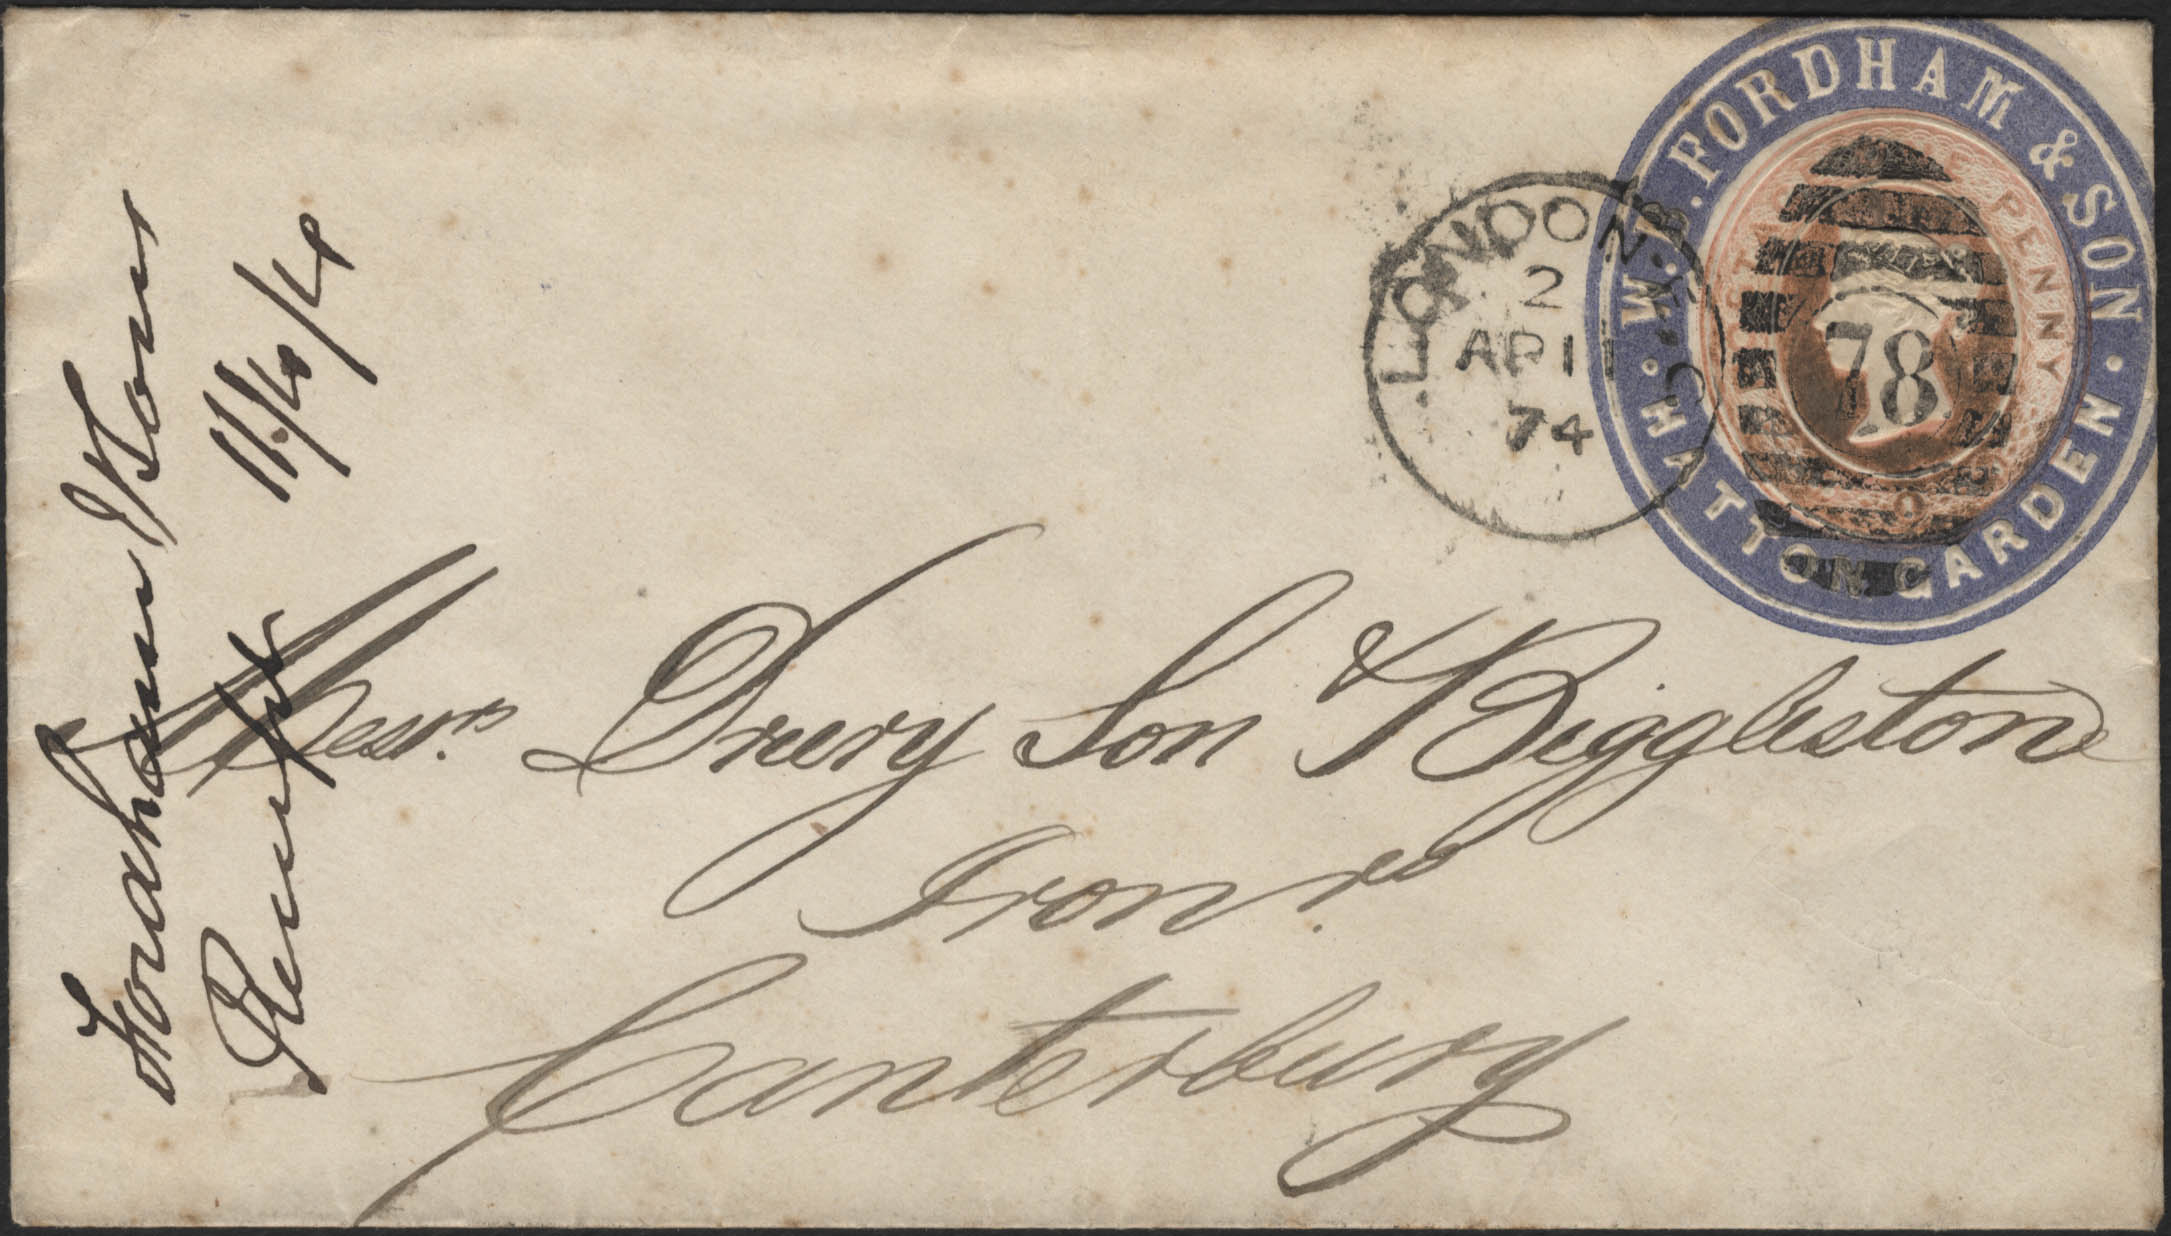 W. B. FORDHAM & SON.
HATTON GARDEN
POSTAGE ONE PENNY
78
LONDON. E.C
2
AP 11
74
Messrs. Drury Son & Biggleston
Canterbury
Fordham & Sons
11/4/74